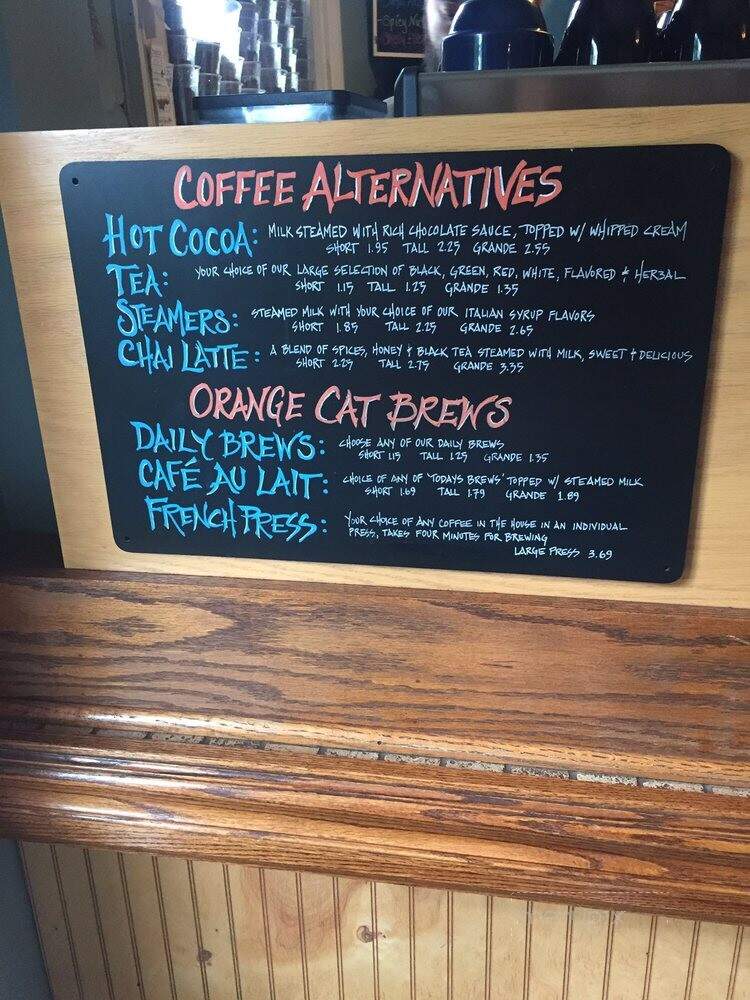 Spicy
COFFEE ALTERNATIVES
HOT COCOA: MILK STEAMED WITH RICH CHOCOLATE SAUCE, TOPPED W/ WHIPPED CREAM
SHORT 1.95 TALL 2.25 GRANDE 2.55
TEA: YOUR CHOICE OF OUR LARGE SELECTION OF BLACK, GREEN, RED, WHITE, FLAVORED & HERBAL
SHORT 1.15 TALL 1.25 GRANDE 1.35
STEAMERS: STEAMED MILK WITH YOUR CHOICE OF OUR ITALIAN SYRUP FLAVORS
SHORT 1.85 TALL 2.25 GRANDE 2.65
CHAI LATTE: A BLEND OF SPICES, HONEY & BLACK TEA STEAMED WITH MILK, SWEET & DELICIOUS
SHORT 2.25 TALL 2.75 GRANDE 3.35
ORANGE CAT BREWS
DAILY BREWS: CHOOSE ANY OF OUR DAILY BREWS
SHORT 1.15 TALL 1.25 GRANDE 1.35
CAFÉ AU LAIT: CHOICE OF ANY OF 'TODAYS BREWS' TOPPED W/ STEAMED MILK
SHORT 1.69 TALL 1.79 GRANDE 1.89
FRENCH PRESS: YOUR CHOICE OF ANY COFFEE IN THE HOUSE IN AN INDIVIDUAL
PRESS, TAKES FOUR MINUTES FOR BREWING
LARGE PRESS 3.69